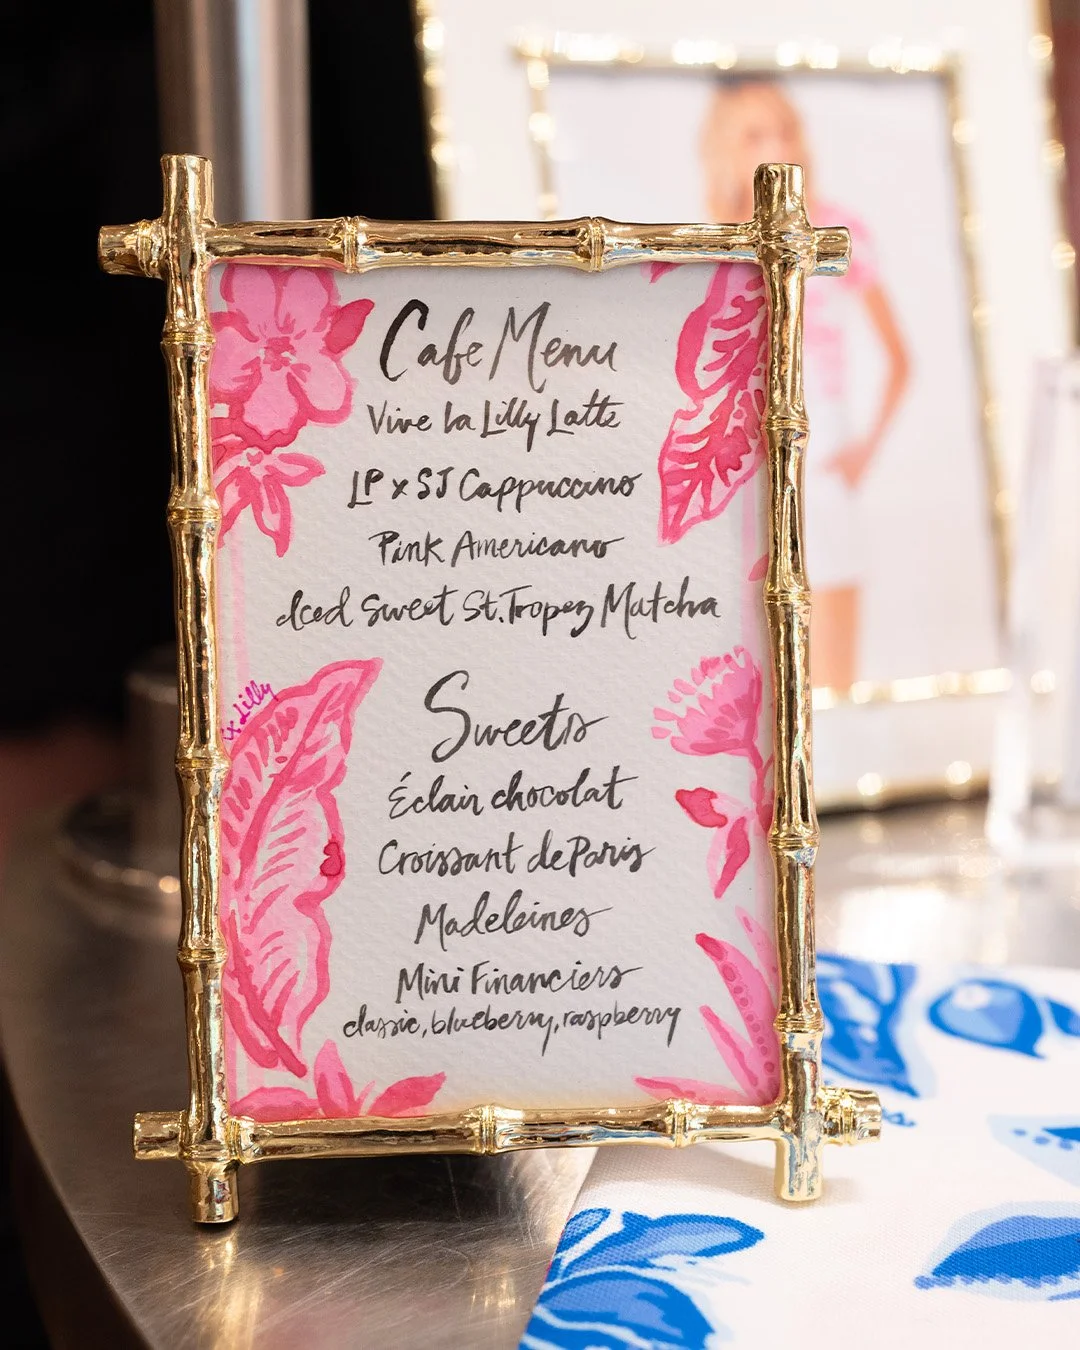 Cafe Menu
Vive la Lilly Latte
LP x SJ Cappuccino
Pink Americano
Iced Sweet St. Tropez Matcha
xx Lilly
Sweets
Éclair chocolat
Croissant de Paris
Madeleines
Mini Financiers
classic, blueberry, raspberry